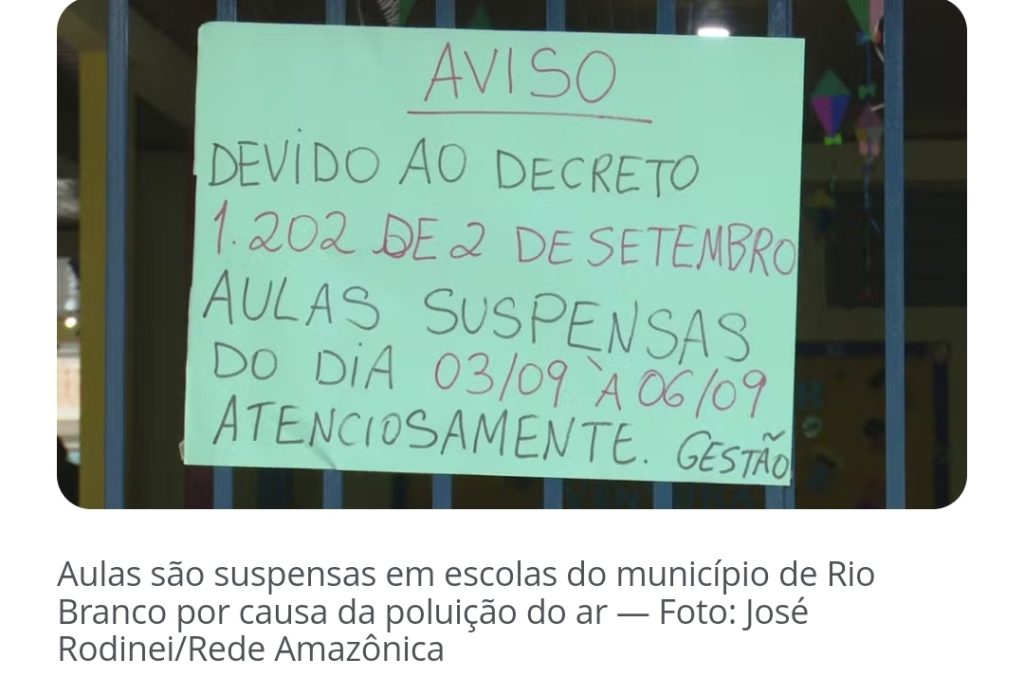 AVISO
DEVIDO AO DECRETO
1.202 DE 2 DE SETEMBRO
AULAS SUSPENSAS
DO DIA 03/09 À 06/09
ATENCIOSAMENTE. GESTÃO
Aulas são suspensas em escolas do município de Rio
Branco por causa da poluição do ar — Foto: José
Rodinei/Rede Amazônica